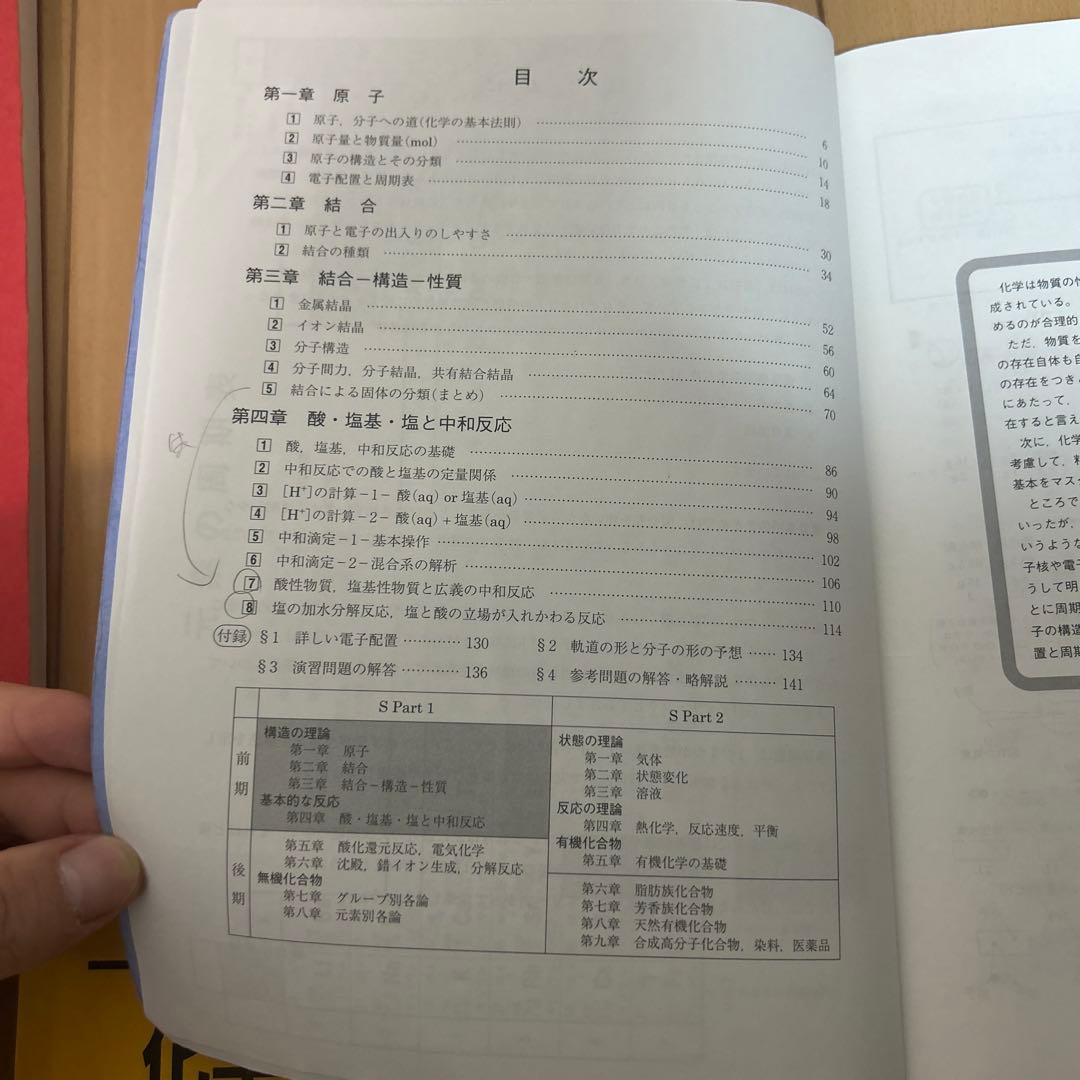 目 次
第一章 原 子
1 原子，分子への道(化学の基本法則) 6
2 原子量と物質量(mol) 10
3 原子の構造とその分類 14
4 電子配置と周期表 18
第二章 結 合
1 原子と電子の出入りのしやすさ 30
2 結合の種類 34
第三章 結合－構造－性質
1 金属結晶 52
2 イオン結晶 56
3 分子構造 60
4 分子間力，分子結晶，共有結合結晶 64
5 結合による固体の分類(まとめ) 70
第四章 酸・塩基・塩と中和反応
1 酸，塩基，中和反応の基礎 86
2 中和反応での酸と塩基の定量関係 90
3 [H⁺]の計算－1－ 酸(aq) or 塩基(aq) 94
4 [H⁺]の計算－2－ 酸(aq)＋塩基(aq) 98
5 中和滴定－1－基本操作 102
6 中和滴定－2－混合系の解析 106
7 酸性物質，塩基性物質と広義の中和反応 110
8 塩の加水分解反応，塩と酸の立場が入れかわる反応 114
付録 §1 詳しい電子配置 ………… 130 §2 軌道の形と分子の形の予想 …… 134
§3 演習問題の解答 ………… 136 §4 参考問題の解答・略解説 ……… 141
S Part 1
前期
構造の理論
第一章 原子
第二章 結合
第三章 結合－構造－性質
基本的な反応
第四章 酸・塩基・塩と中和反応
後期
第五章 酸化還元反応，電気化学
第六章 沈殿，錯イオン生成，分解反応
無機化合物
第七章 グループ別各論
第八章 元素別各論
S Part 2
状態の理論
第一章 気体
第二章 状態変化
第三章 溶液
反応の理論
第四章 熱化学，反応速度，平衡
有機化合物
第五章 有機化学の基礎
第六章 脂肪族化合物
第七章 芳香族化合物
第八章 天然有機化合物
第九章 合成高分子化合物，染料，医薬品
化学は物質の
成されている。
めるのが合理的
ただ，物質を
の存在自体も
の存在をつき
にあたって，
在すると言え
次に，化学
考慮して，
基本をマス
ところで
いったが，
いうような
子核や電子
うして明
とに周期
子の構造
置と周期